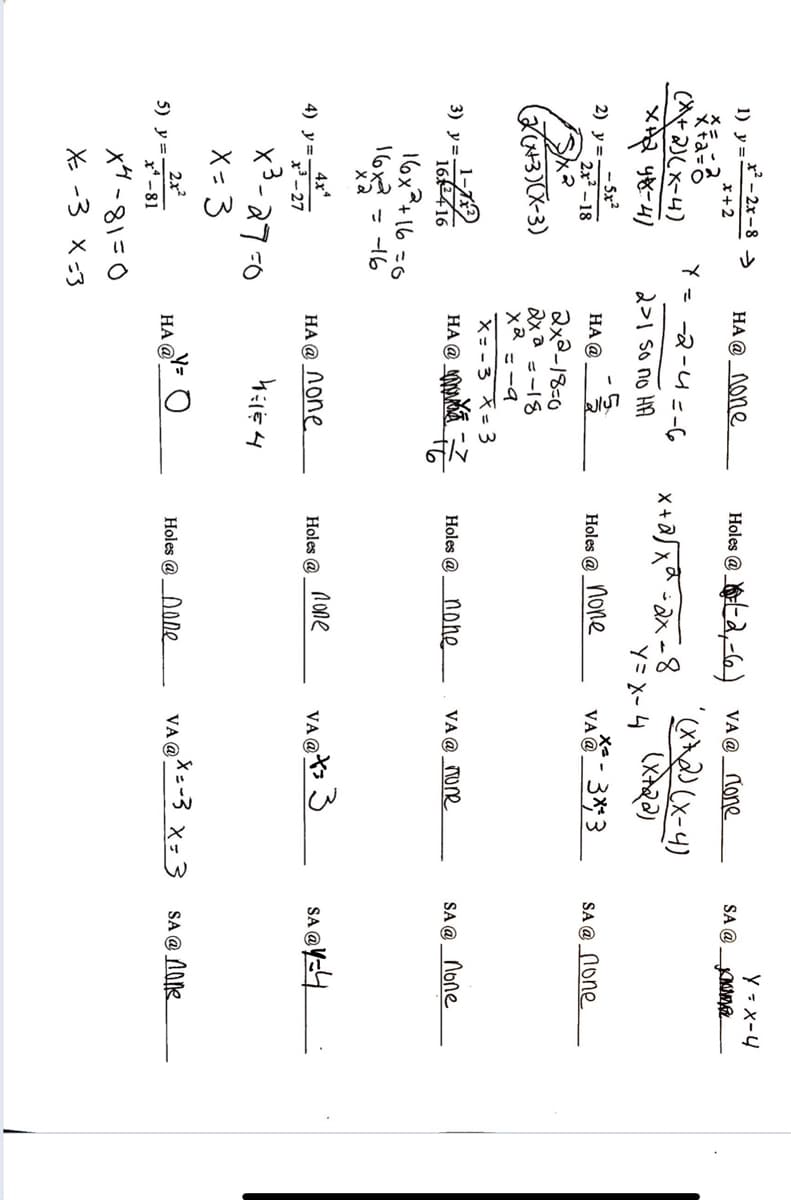 1) y = x² - 2x - 8 / x + 2 → HA @ none Holes @ (-2, -6) VA @ none SA @ y = x - 4
x + 2 = 0
x = -2
(x + 2)(x - 4) / x + 2
y = -2 - 4 = -6
2 > 1 so no HA
x + 2 √ x² - 2x - 8
y = x - 4
(x + 2)(x - 4)
2) y = -5x² / 2x² - 18 HA @ -5/2 Holes @ none VA @ x = -3, x = 3 SA @ none
-5x² / 2(x+3)(x-3)
2x² - 18 = 0
2x² = -18
x² = -9
x = -3 x = 3
3) y = 1 - 7x² / 16x² + 16 HA @ y = -7/16 Holes @ none VA @ none SA @ none
16x² + 16 = 0
16x² = -16
x²
4) y = 4x⁴ / x³ - 27 HA @ none Holes @ none VA @ x = 3 SA @ y = 4
x³ - 27 = 0
x = 3
5) y = 2x² / x⁴ - 81 HA @ y = 0 Holes @ none VA @ x = -3 x = 3 SA @ none
x⁴ - 81 = 0
x = -3 x = 3